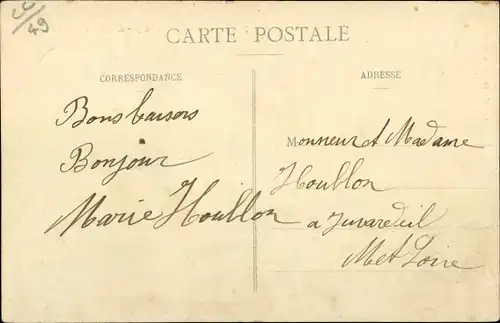 CC/49
CARTE POSTALE
CORRESPONDANCE
Bons baisers
Bonjour
Marie Houllon
ADRESSE
Monsieur et Madame
Houllon
a Juvardeil
M et Loire